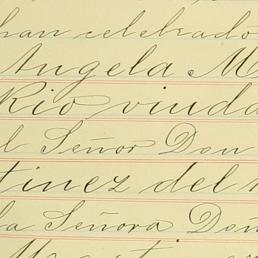 han celebrado
Angela M
Rio viuda
l Señor Don
tinez del
la Señora Doñ